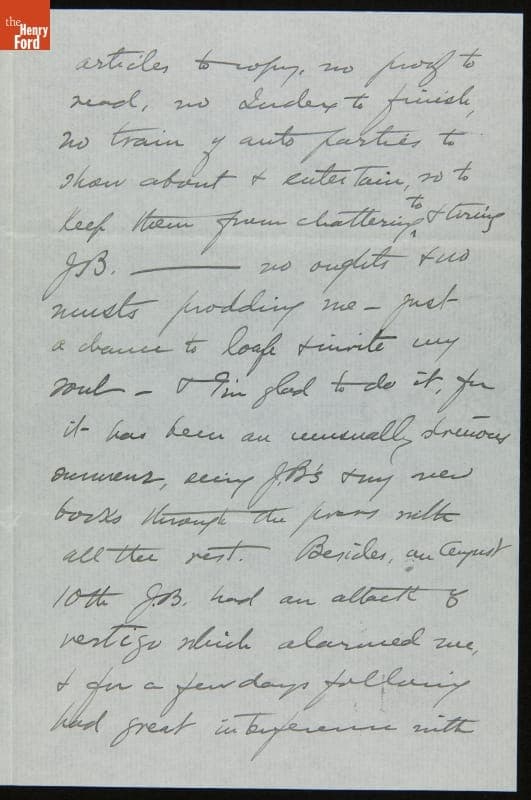 the
Henry
Ford
articles to copy, no proof to
read, no Index to finish,
no train of auto parties to
show about & entertain, so to
keep them from chattering to & tiring
J.B. ——— no oughts & no
musts prodding me – just
a chance to loaf & invite my
soul – & I'm glad to do it, for
it has been an unusually strenuous
summer, seeing J.B's & my new
books through the press with
all the rest. Besides, on August
10th J.B. had an attack of
vertigo which alarmed me,
& for a few days following
had great interference with